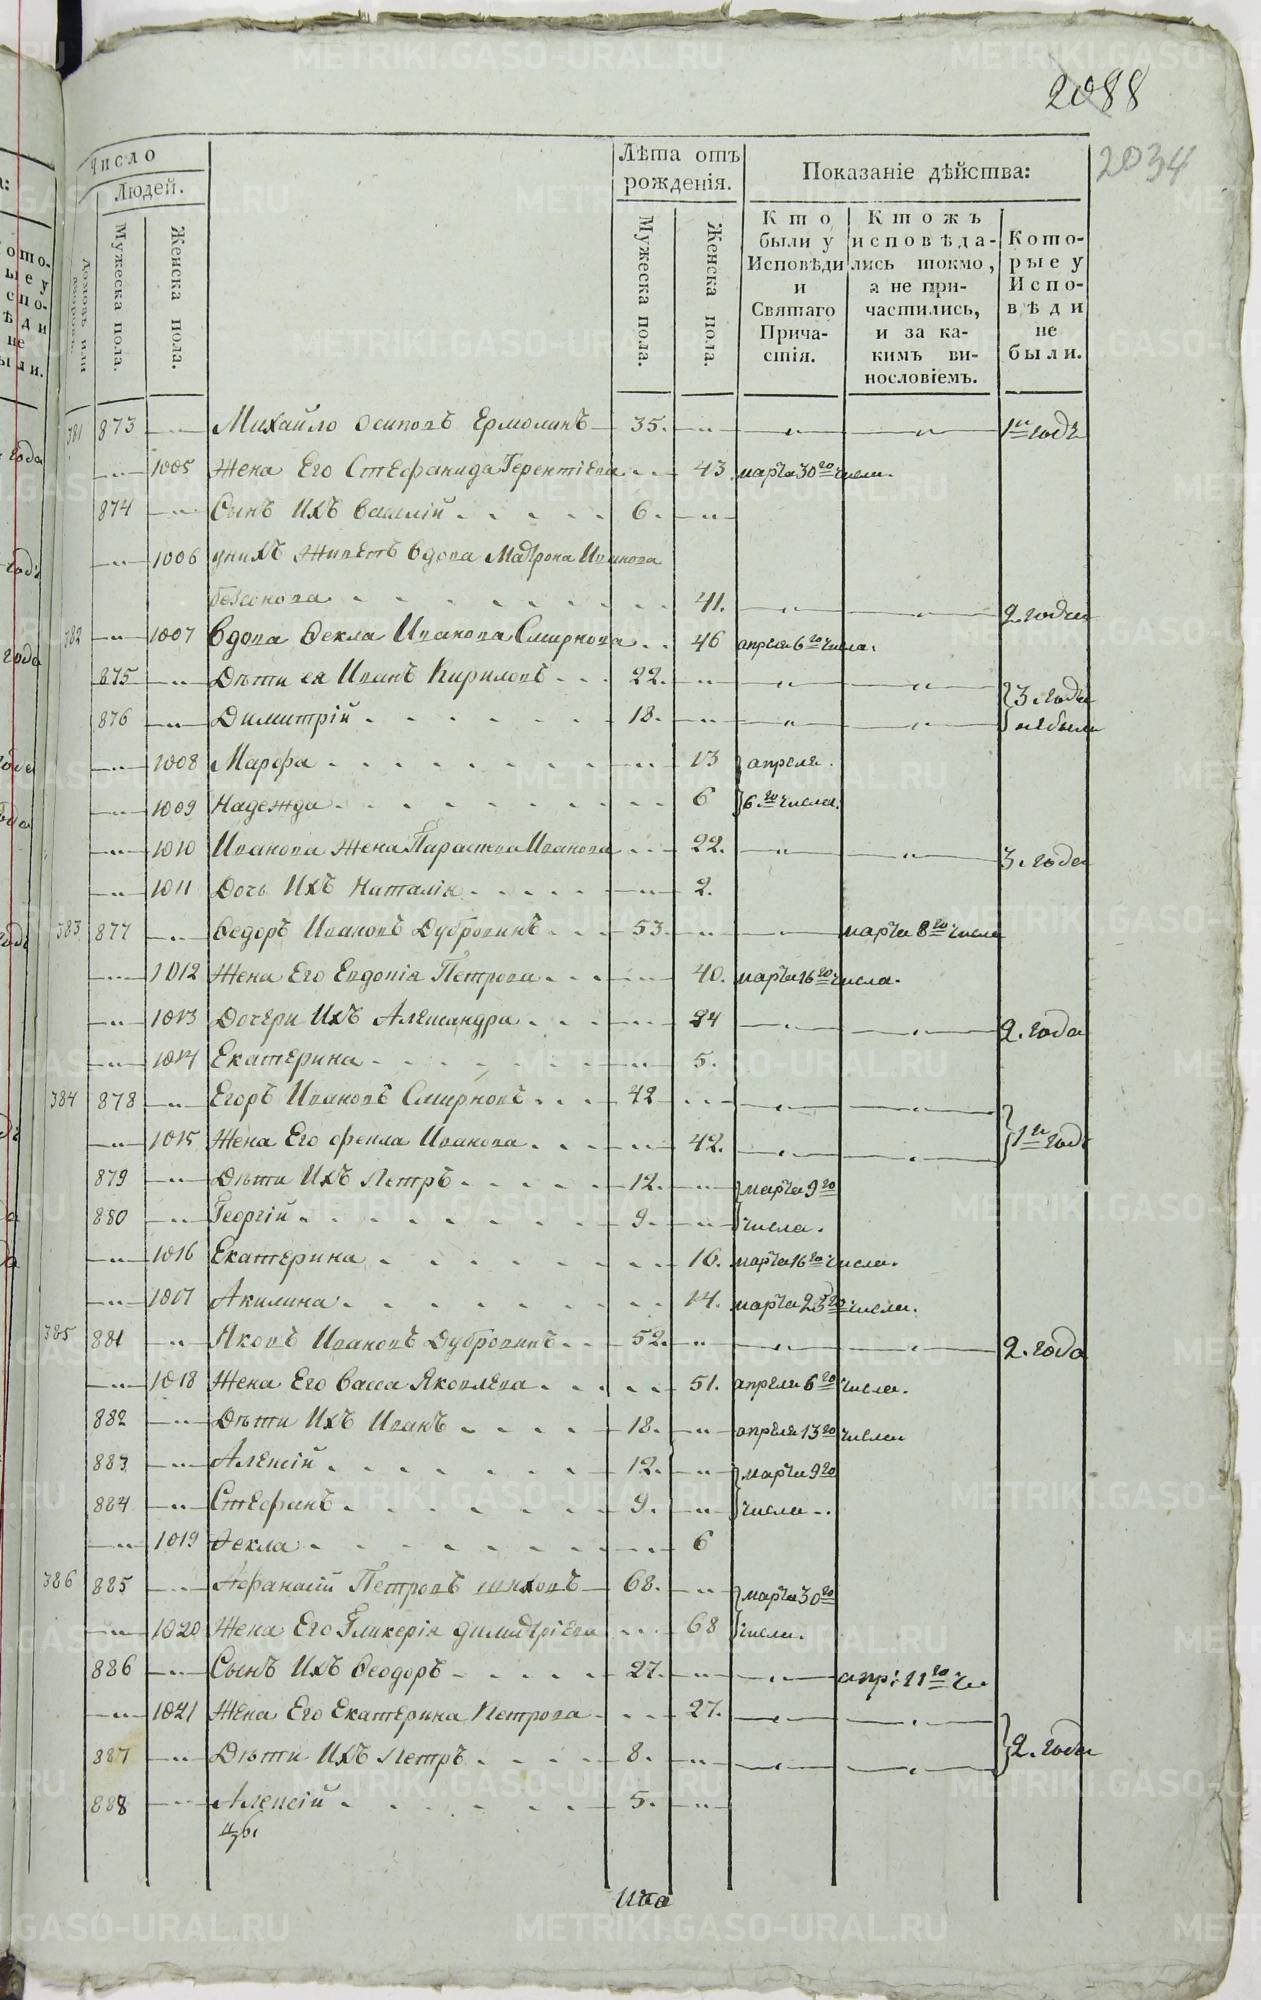 2088
2034
Число
Людей.
Лѣта отъ
рожденія.
Показаніе дѣйства:
Домовъ или
Мужеска пола.
Женска пола.
Мужеска пола.
Женска пола.
Кто
были у
Исповѣди
и
Святаго
Прича-
стія.
Ктожъ
исповѣда-
лись токмо,
а не при-
частились,
и за ка-
кимъ ви-
нословіемъ.
Кото-
рые у
Испо-
вѣди
не
были.
381 873 Михайло Осиповъ Ермолинъ 35. 1й годъ
1005 Жена Его Стефанида Терентіева 43 марта 30го числа.
874 Сынъ Ихъ Василій 6.
1006 У нихъ Живетъ Вдова Матрона Иванова
41. 2 года
382 1007 Вдова Фекла Иванова Смирнова 46 апреля 6го числа.
875 Дѣти ея Иванъ Кириловъ 22. 3. года
876 Димитрій 18. не были
1008 Марфа 13 апреля
1009 Надежда 6 6го числа.
1010 Иванова Жена Параскева Иванова 22. 3. года
1011 Дочь Ихъ Наталія 2.
383 877 Федоръ Ивановъ Дубровинъ 53. марта 8го числа
1012 Жена Его Евдокія Петрова 40. марта 16го числа.
1013 Дочери Ихъ Александра 24 2. года
1014 Екатерина 5.
384 878 Егоръ Ивановъ Смирновъ 42
1015 Жена Его Фекла Иванова 42. 1й годъ
879 Дѣти Ихъ Петръ 12. марта 9го
880 Георгій 9. числа.
1016 Екатерина 16. марта 16го числа.
1017 Акилина 14. марта 23го числа.
385 881 Яковъ Ивановъ Дубровинъ 52. 2. года
1018 Жена Его Васса Яковлева 51. апреля 6го числа.
882 Дѣти Ихъ Иванъ 18. апреля 13го числа
883 Алексій 12. марта 9го
884 Стефанъ 9. числа.
1019 Фекла 6
386 885 Афанасій Петровъ 68. марта 30го
1020 Жена Его Гликерія Димитріева 68 числа.
886 Сынъ Ихъ Феодоръ 27. апр: 21го ч.
1021 Жена Его Екатерина Петрова 27.
887 Дѣти Ихъ Петръ 8. 2. года
888 Алексій 5.